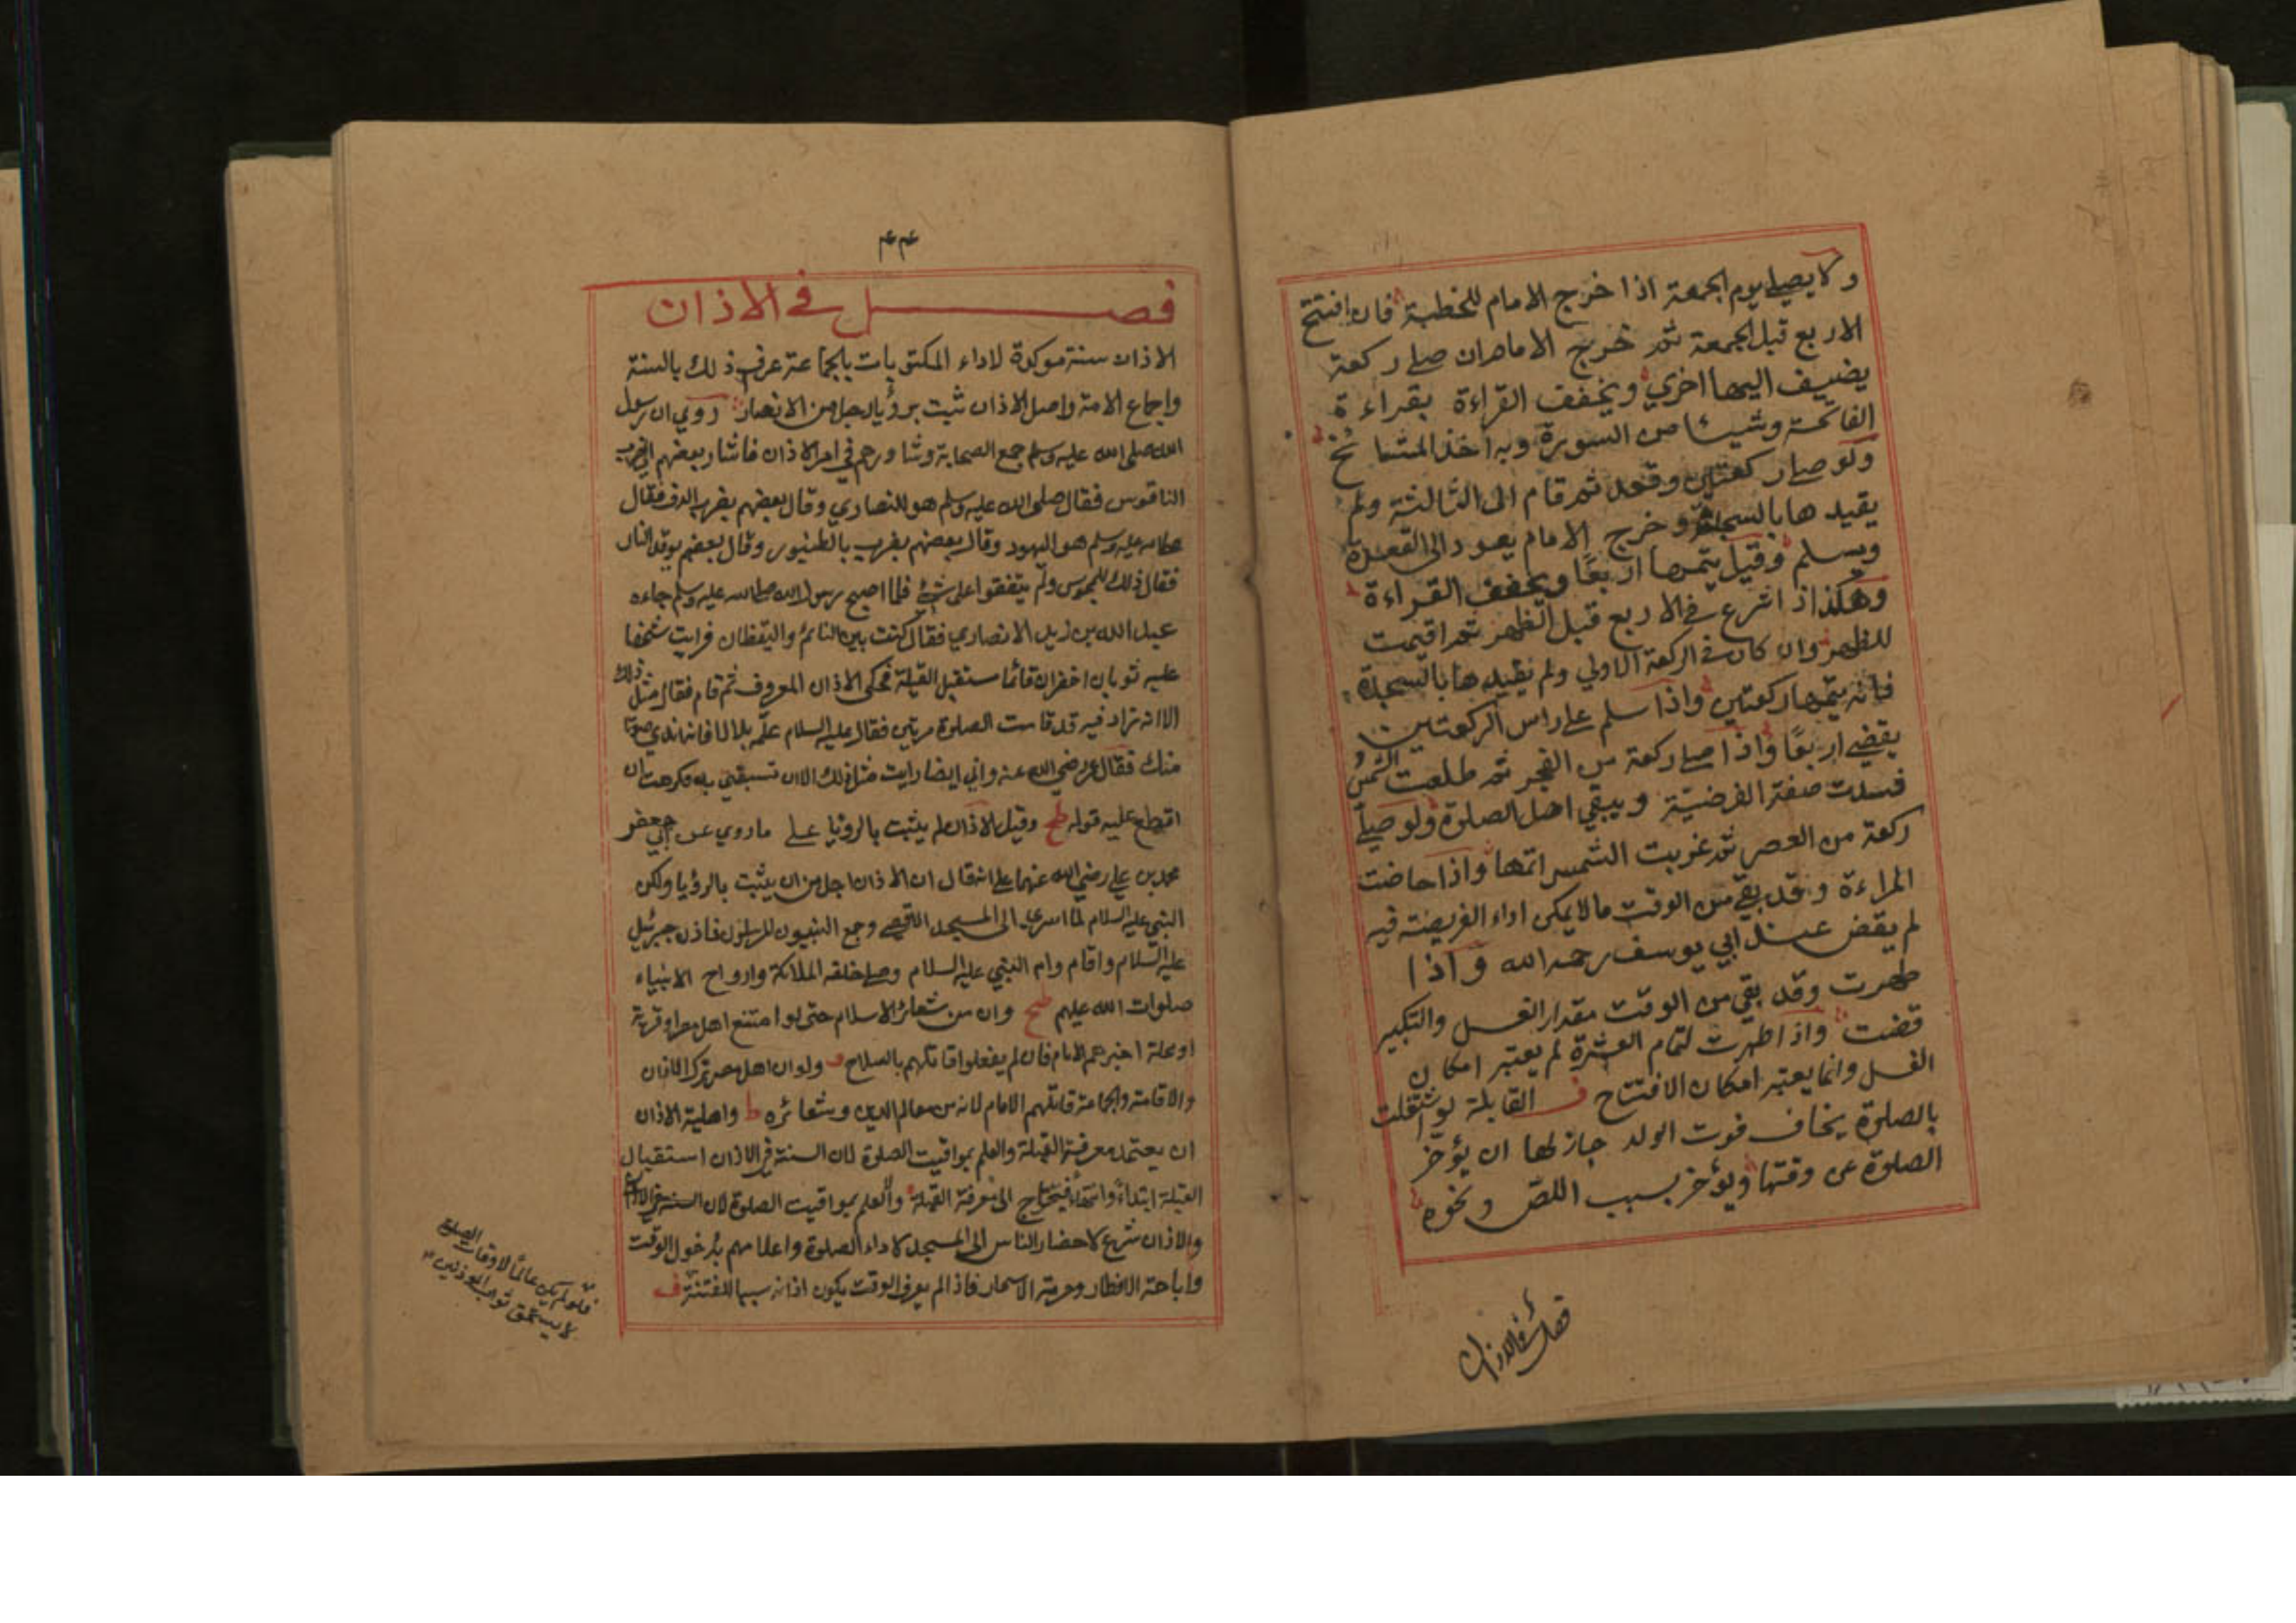 ولا يصلي يوم الجمعة اذا خرج الامام للخطبة فان افتتح
الاربع قبل الجمعة ثم خرج الامام ان صلى ركعة
يضيف اليها اخري ويخفف القراءة بقراءة
الفاتحة وشيئا من السورة وبه اخذ المشايخ
ولو صلى ركعتين وقعد ثم قام الى الثالثة ولم
يقيدها بالسجدة وخرج الامام يعود الى القعدة
ويسلم وقيل يتمها اربعًا ويخفف القراءة
وهكذا اذا شرع في الاربع قبل الظهر ثم اقيمت
للظهر وان كان في الركعة الاولي ولم يقيدها بالسجدة
فانه يتمها ركعتين واذا سلم على راس الركعتين
يقضي اربعًا واذا صلى ركعة من الفجر ثم طلعت الشمس
فسدت صفة الفرضية ويبقي اصل الصلوة ولو صلى
ركعة من العصر ثم غربت الشمس اتمها واذا حاضت
المراءة وقد بقي من الوقت ما لا يمكن اداء الفريضة فيه
لم يقض عند ابي يوسف رحمه الله واذا
طهرت وقد بقي من الوقت مقدار الغسل والتكبير
قضت واذا طهرت لتمام العشرة لم يعتبر امكان
الغسل وانما يعتبر امكان الافتتاح ف القابلة لو اشتغلت
بالصلوة يخاف فوت الولد جاز لها ان يؤخر
الصلوة عن وقتها ويؤخر بسبب اللص ونحوه
فصل في الاذان
۴۴
فصل في الاذان
الاذان سنة موكدة لاداء المكتوبات بالجماعة عرف ذلك بالسنة
واجماع الامة واصل الاذان ثبت برؤيا رجل من الانصار روي ان رسول
الله صلى الله عليه وسلم جمع الصحابة وشاورهم في امر الاذان فاشار بعضهم الى ضرب
الناقوس فقال صلى الله عليه وسلم هو للنصاري وقال بعضهم بضرب الدف فقال
عليه وسلم هو اليهود وقال بعضهم بضرب بالطنبور وقال بعضهم يوقد النار
فقال ذلك للمجوس ولم يتفقوا على شئ فلما اصبح رسول الله صلى الله عليه وسلم جاءه
عبد الله بن زيد الانصاري فقال كنت بين النائم واليقظان فرايت شخصا
عليه ثوبان اخضران قائما مستقبل القبلة فحكى الاذان المعروف ثم قام فقال مثل ذلك
الا انه زاد فيه قد قامت الصلوة مرتين فقال عليه السلام علّمه بلالا فانه اندي صوتا
منك فقال عمر رضي الله عنه واني ايضا رايت مثل ذلك الا ان تسبقني به فكرهت ان
اقطع عليه قوله طح وقيل الاذان لم يثبت بالرؤيا على ما روي عن ابي جعفر
محمد بن علي رضي الله عنهما على انه قال ان الاذان اجل من ان يثبت بالرؤيا ولكن
النبي عليه السلام لما اسري الى المسجد الاقصى وجمع النبيون المرسلون فاذن جبرئيل
عليه السلام واقام وام النبي عليه السلام وصلى خلفه الملائكة وارواح الانبياء
صلوات الله عليهم طح وان من شعائر الاسلام حتى لو امتنع اهل مصر او قرية
او محلة اجبرهم الامام فان لم يفعلوا قاتلهم بالسلاح ولو ان اهل مصر تركوا الاذان
والاقامة والجماعة قاتلهم الامام لانه من معالم الدين وشعائره ط واهلية الاذان
ان يعتمد معرفة القبلة والعلم بمواقيت الصلوة لان السنة في الاذان استقبال
القبلة ابتداءً وانتهاءً فيحتاج الى معرفة القبلة والعلم بمواقيت الصلوة لان السنة في الاذان
والاذان شرع لاحضار الناس الى المسجد لاداء الصلوة واعلامهم بدخول الوقت
واباحة الافطار وحرمة الاسحار فاذا لم يعرف الوقت يكون اذانه سببا للفتنة ف
فلو لم يكن عالمًا لاوقات الصلوة
لا يستحق ثواب المؤذنين